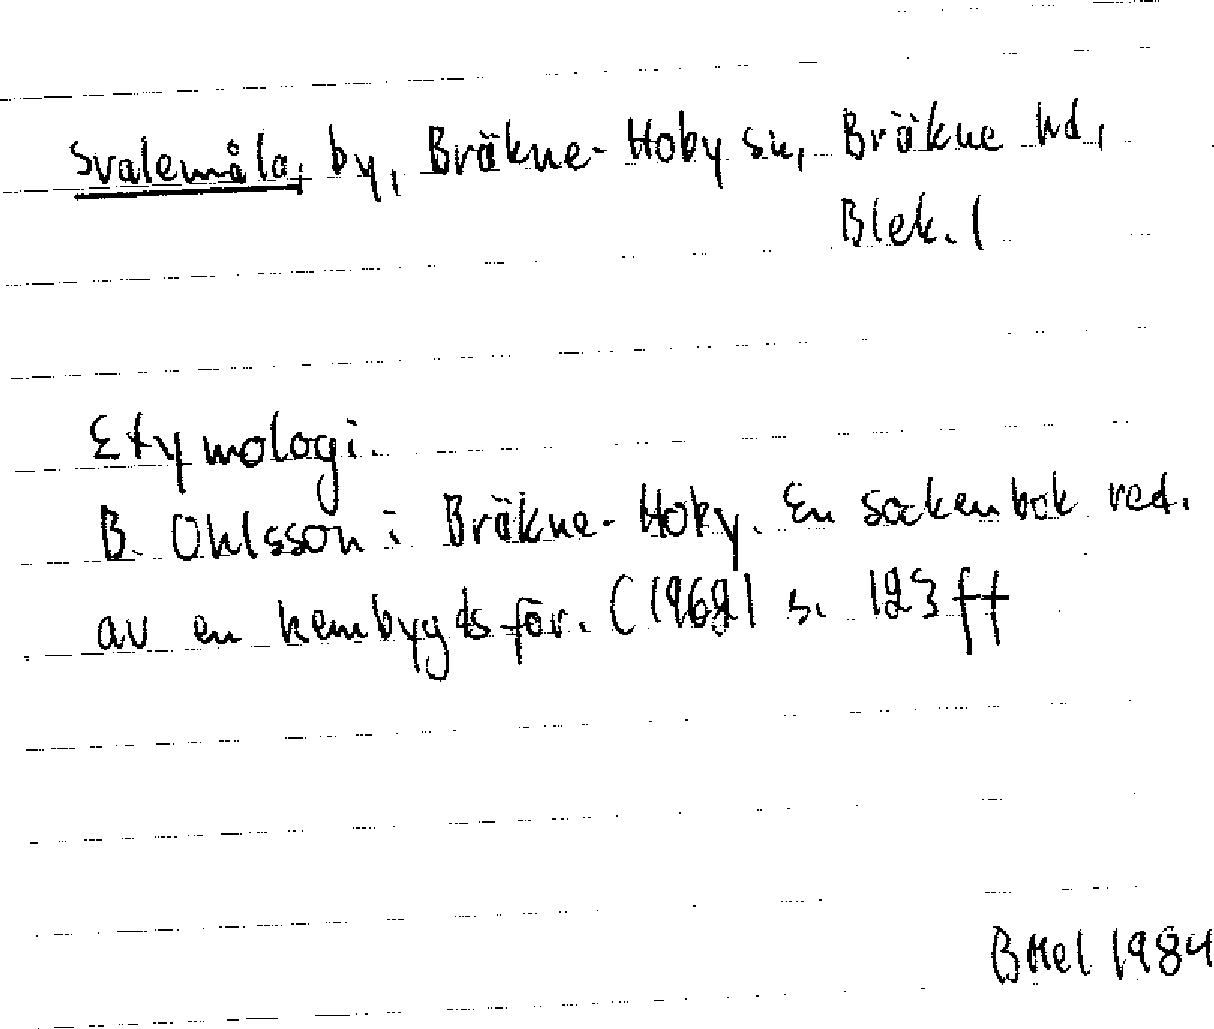 Svalemåla, by, Bräkne-Hoby sn, Bräkne hd,
Blek. l
Etymologi.
B. Ohlsson i Bräkne-Hoby. En sockenbok red.
av en hembygdsför. (1962) s. 123 ff
BHel 1984